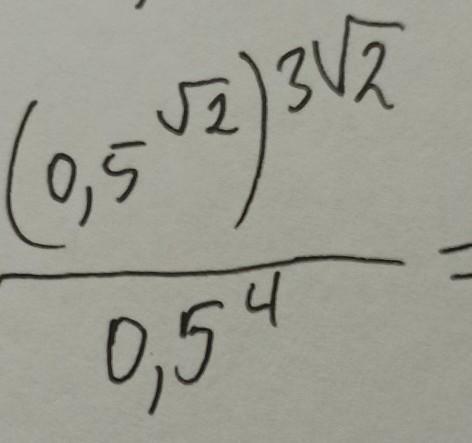 (0,5^√2)^3√2
0,5^4 =